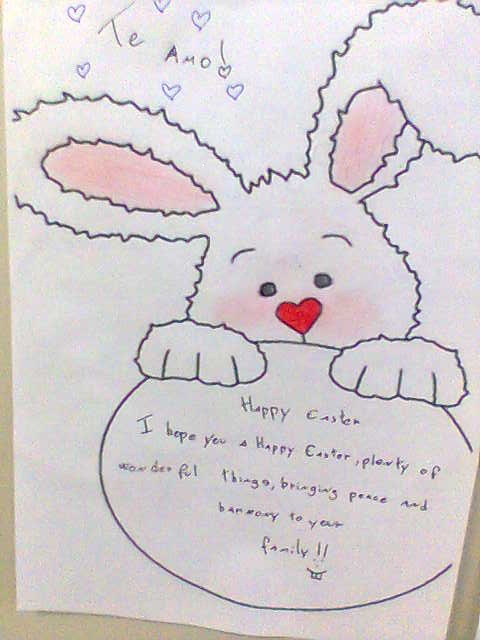 Te
Amo!
Happy Easter
I hope you a Happy Easter, plenty of
wonderful things, bringing peace and
harmony to your
family!!